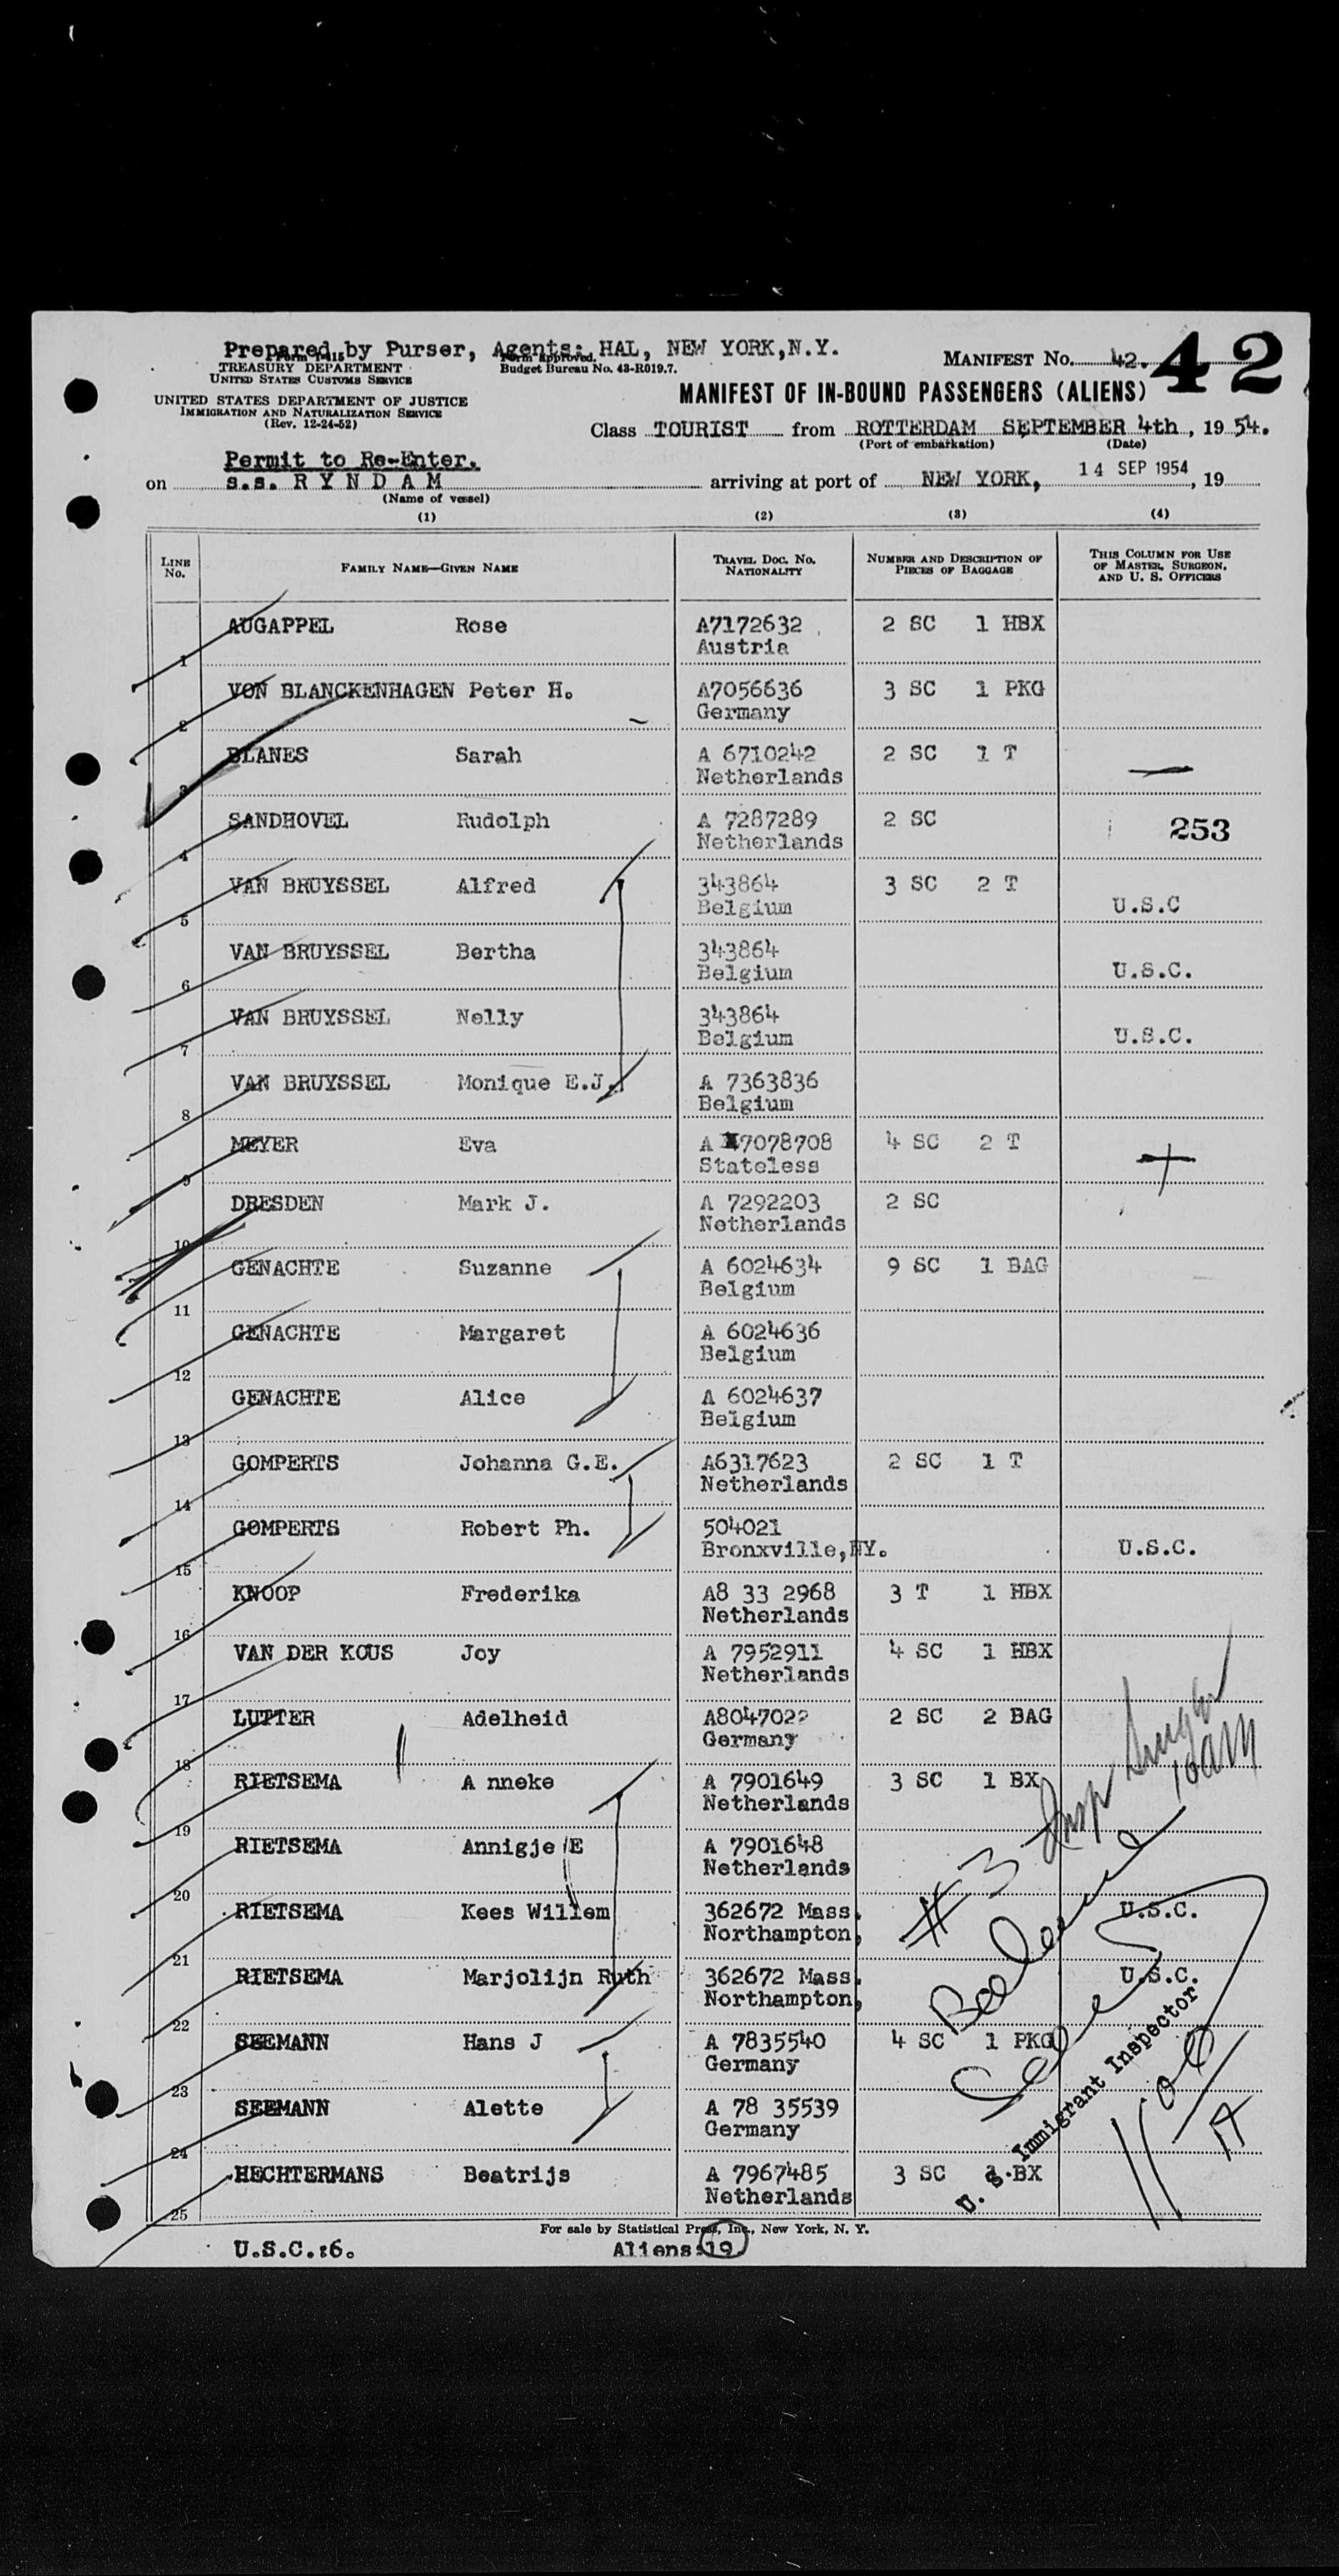 Prepared by Purser, Agents: HAL, NEW YORK, N.Y.
Form I-415
TREASURY DEPARTMENT
UNITED STATES CUSTOMS SERVICE
Form approved.
Budget Bureau No. 43-R019.7.
MANIFEST No. 42. 42
UNITED STATES DEPARTMENT OF JUSTICE
IMMIGRATION AND NATURALIZATION SERVICE
(Rev. 12-24-52)
MANIFEST OF IN-BOUND PASSENGERS (ALIENS)
Class TOURIST from ROTTERDAM SEPTEMBER 4th, 19 54.
(Port of embarkation) (Date)
Permit to Re-Enter.
on s.s. R Y N D A M arriving at port of NEW YORK, 14 SEP 1954, 19
(Name of vessel)
(1) (2) (3) (4)
LINE No. FAMILY NAME—GIVEN NAME TRAVEL DOC. NO. NATIONALITY NUMBER AND DESCRIPTION OF PIECES OF BAGGAGE THIS COLUMN FOR USE OF MASTER, SURGEON, AND U. S. OFFICERS
AUGAPPEL Rose A7172632 2 SC 1 HBX
1 Austria
VON BLANCKENHAGEN Peter H. A7056636 3 SC 1 PKG
2 Germany
BLANES Sarah A 6710242 2 SC 1 T
3 Netherlands —
SANDHOVEL Rudolph A 7287289 2 SC 253
4 Netherlands
VAN BRUYSSEL Alfred 343864 3 SC 2 T
5 Belgium U.S.C
VAN BRUYSSEL Bertha 343864
6 Belgium U.S.C.
VAN BRUYSSEL Nelly 343864
7 Belgium U.S.C.
VAN BRUYSSEL Monique E.J. A 7363836
8 Belgium
MEYER Eva A 7078708 4 SC 2 T
9 Stateless +
DRESDEN Mark J. A 7292203 2 SC
10 Netherlands
GENACHTE Suzanne A 6024634 9 SC 1 BAG
11 Belgium
GENACHTE Margaret A 6024636
12 Belgium
GENACHTE Alice A 6024637
13 Belgium
GOMPERTS Johanna G.E. A6317623 2 SC 1 T
14 Netherlands
GOMPERTS Robert Ph. 504021
15 Bronxville, NY. U.S.C.
KNOOP Frederika A8 33 2968 3 T 1 HBX
16 Netherlands
VAN DER KOUS Joy A 7952911 4 SC 1 HBX
17 Netherlands
LUTTER Adelheid A8047022 2 SC 2 BAG
18 Germany
RIETSEMA A nneke A 7901649 3 SC 1 BX
19 Netherlands
RIETSEMA Annigje E A 7901648
20 Netherlands
RIETSEMA Kees Willem 362672 Mass. U.S.C.
21 Northampton,
RIETSEMA Marjolijn Ruth 362672 Mass. U.S.C.
22 Northampton,
SEEMANN Hans J A 7835540 4 SC 1 PKG
23 Germany
SEEMANN Alette A 78 35539
24 Germany
HECHTERMANS Beatrijs A 7967485 3 SC 1 BX
25 Netherlands
#3 Insp
10AM
U. S. Immigrant Inspector
For sale by Statistical Press, Inc., New York, N. Y.
U.S.C.:6. Aliens:19